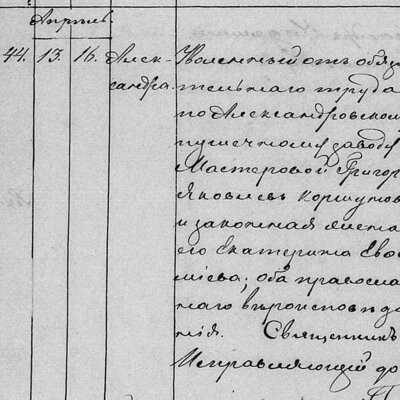 Апрѣль.
44. 13. 16. Алек-
сандра.
Уволенный отъ обяза
тельнаго труда
по Александровском
пушечному заводу
Мастеровой Григор
Яковлевъ Коршунов
и законная жена
его Екатерина Евое
міева, оба правосла
внаго вѣроисповѣда
нія. Священникъ
Исправляющій до